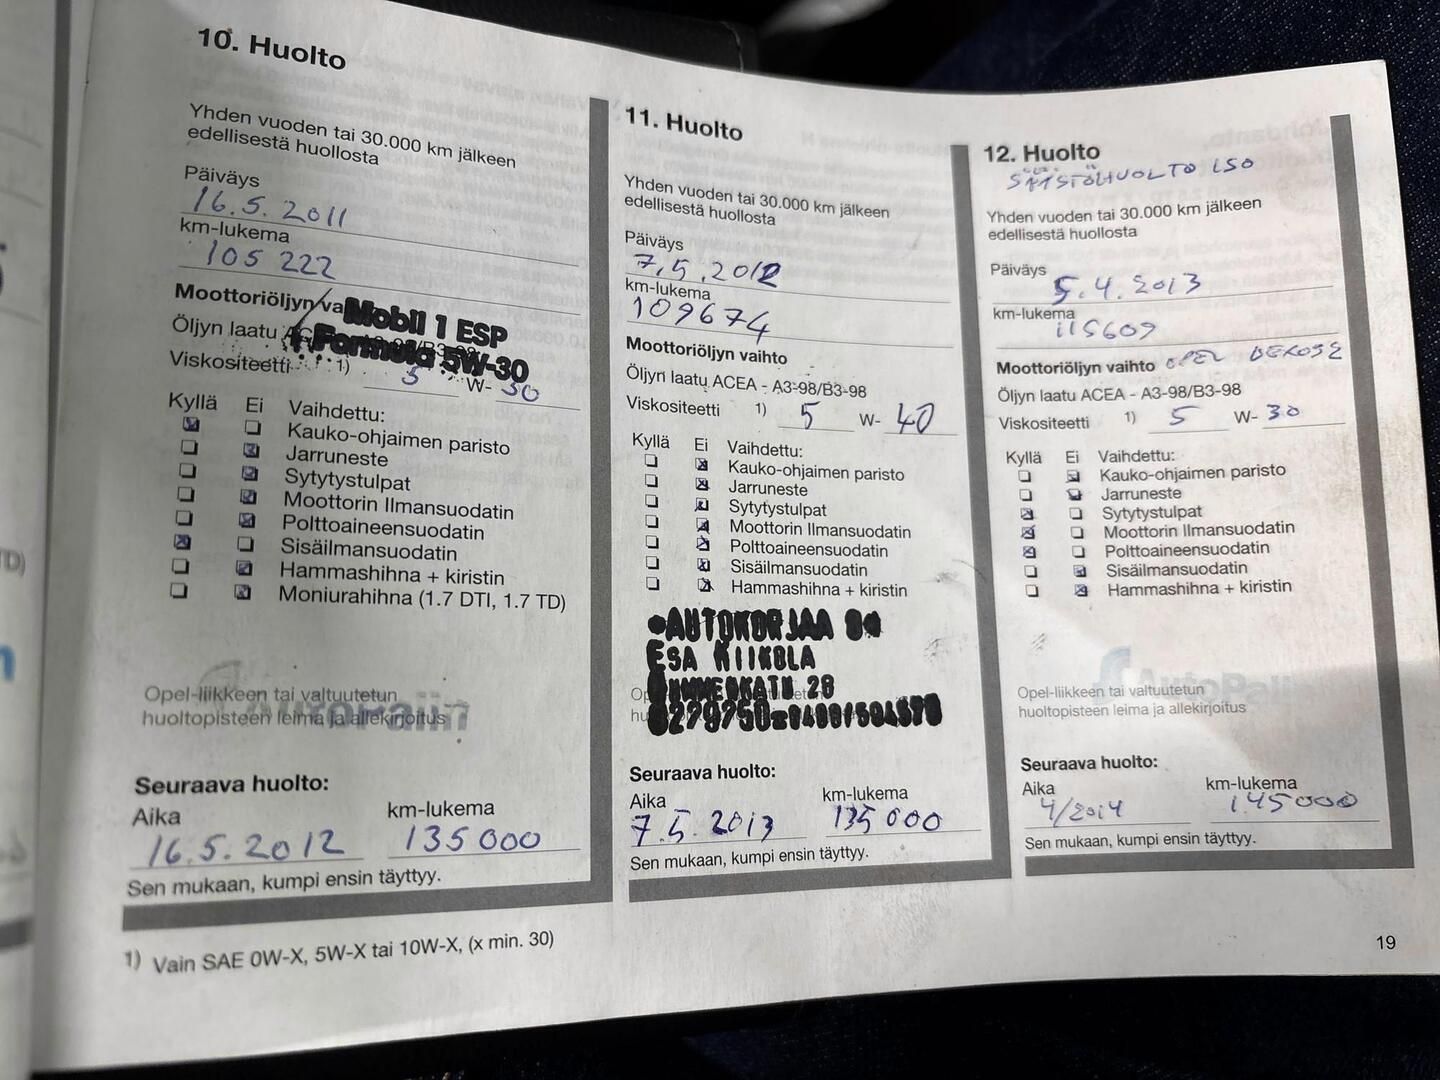 10. Huolto
Yhden vuoden tai 30.000 km jälkeen
edellisestä huollosta
Päiväys
16.5.2011
km-lukema
105 222
Moottoriöljyn va
Mobil 1 ESP
Öljyn laatu
Formula 5W-30
Viskositeetti 1) 5 W- 30
Kyllä Ei Vaihdettu:
Kauko-ohjaimen paristo
Jarruneste
Sytytystulpat
Moottorin Ilmansuodatin
Polttoaineensuodatin
Sisäilmansuodatin
Hammashihna + kiristin
Moniurahihna (1.7 DTI, 1.7 TD)
Opel-liikkeen tai valtuutetun
huoltopisteen leima ja allekirjoitus
AutoPalin
Seuraava huolto:
Aika km-lukema
16.5.2012 135 000
Sen mukaan, kumpi ensin täyttyy.
1) Vain SAE 0W-X, 5W-X tai 10W-X, (x min. 30)
11. Huolto
Yhden vuoden tai 30.000 km jälkeen
edellisestä huollosta
Päiväys
7.5.2012
km-lukema
109674
Moottoriöljyn vaihto
Öljyn laatu ACEA - A3-98/B3-98
Viskositeetti 1) 5 W- 40
Kyllä Ei Vaihdettu:
Kauko-ohjaimen paristo
Jarruneste
Sytytystulpat
Moottorin Ilmansuodatin
Polttoaineensuodatin
Sisäilmansuodatin
Hammashihna + kiristin
AUTOKORJAA
ESA NIIKOLA
28
Seuraava huolto:
Aika km-lukema
7.5.2013 135 000
Sen mukaan, kumpi ensin täyttyy.
12. Huolto
SÄÄSTÖHUOLTO ISO
Yhden vuoden tai 30.000 km jälkeen
edellisestä huollosta
Päiväys
5.4.2013
km-lukema
115609
Moottoriöljyn vaihto OPEL DEXOS2
Öljyn laatu ACEA - A3-98/B3-98
Viskositeetti 1) 5 W- 30
Kyllä Ei Vaihdettu:
Kauko-ohjaimen paristo
Jarruneste
Sytytystulpat
Moottorin Ilmansuodatin
Polttoaineensuodatin
Sisäilmansuodatin
Hammashihna + kiristin
AutoPalin
Opel-liikkeen tai valtuutetun
huoltopisteen leima ja allekirjoitus
Seuraava huolto:
Aika km-lukema
4/2014 145000
Sen mukaan, kumpi ensin täyttyy.
19